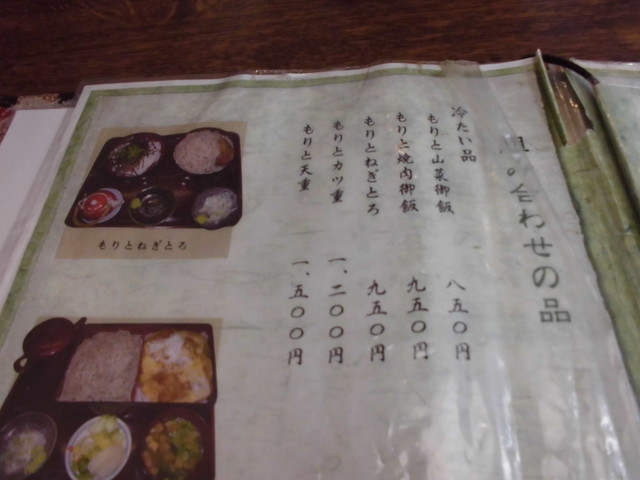 の合わせの品
冷たい品
もりと山菜御飯 八五〇円
もりと焼肉御飯 九五〇円
もりとねぎとろ 九五〇円
もりとカツ重 一、二〇〇円
もりと天重 一、五〇〇円
もりとねぎとろ